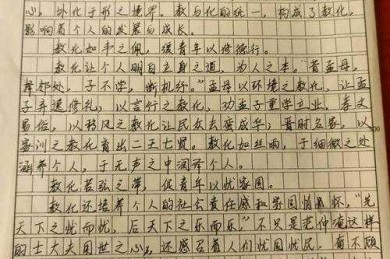 心,外化于形之境界。教与化的统一,构成了教化,
影响着个人的发展与成长。
教化如手之佩,缓青年以修德行。
教化让个人明自立身之道,为人之本。"昔孟母,
择邻处。子不学,断机杼。"孟母以环境之教化,让孟
子弃退修礼;以言行之教化,劝孟子重学立业。秦文
易俗,以移风之教化让民众去蛮成华;晋时名家,以
家训之教化育出二王七贤。教化如丝响,于细微之处
涵养个人,于无声之中润泽个人。
教化若弦之弹,促青年以忧家国。
教化还培养个人的社会责任感和家国情怀。"先
天下之忧而忧,后天下之乐而乐。"不只是范仲淹这样
的士大夫用世之心,还感召着人们忧国忧民,有不顾